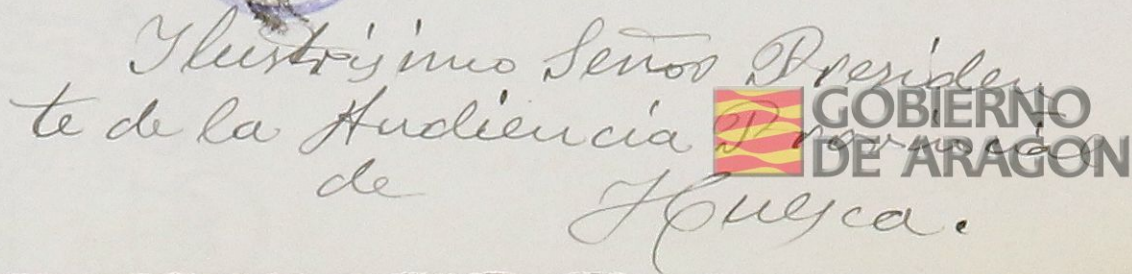 Ilustrisimo Señor Presiden
te de la Audiencia Provincial
de Huesca.
GOBIERNO
DE ARAGON